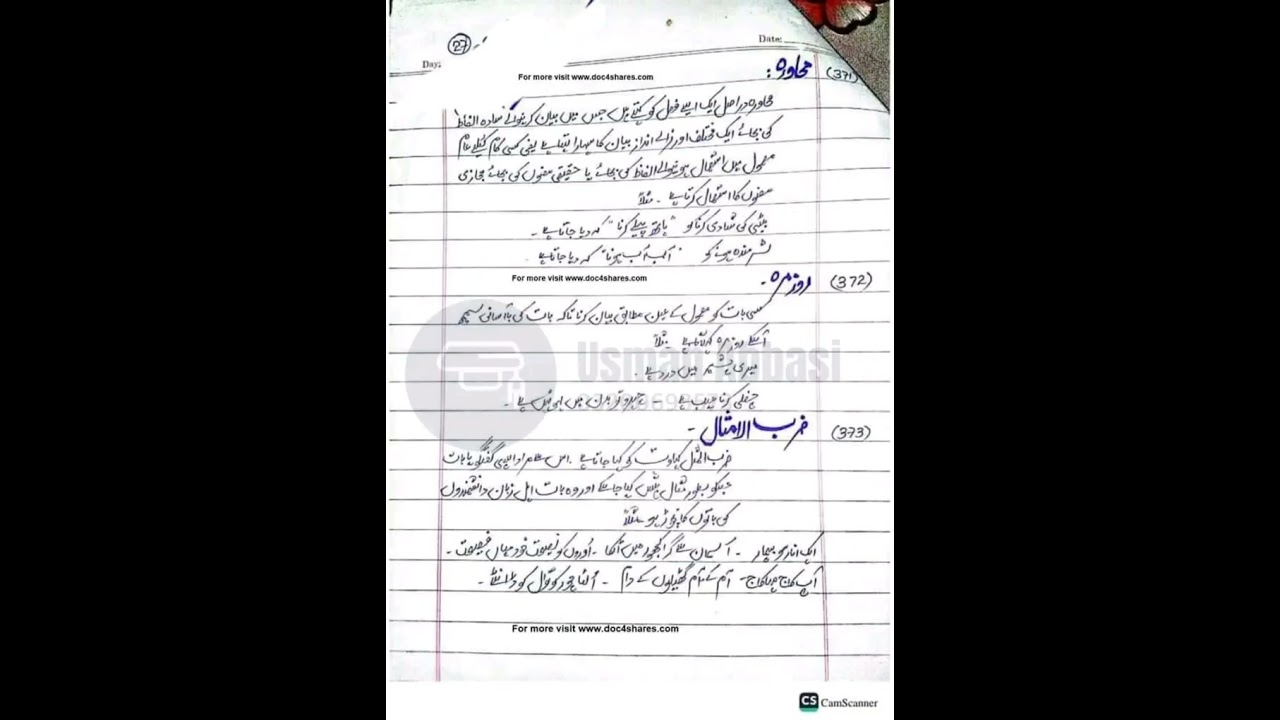 27
Date:
Day:
For more visit www.doc4shares.com
(371) محاورہ:
محاورہ دراصل ایک ایسے فعل کو کہتے ہیں جس میں بیان کرنیوالے سادہ الفاظ
کی بجائے ایک مختلف اور نرالے انداز بیان کا سہارا لیتا ہے یعنی کسی کام کیلئے عام
معمول میں استعمال ہونیوالے الفاظ کی بجائے یا حقیقی معنوں کی بجائے مجازی
معنوں کا استعمال کرتا ہے ۔ مثلاً
بیٹی کی شادی کرنا کو "ہاتھ پیلے کرنا" کہہ دیا جاتا ہے ۔
شرمندہ ہونے کو "آب آب ہونا" کہہ دیا جاتا ہے ۔
For more visit www.doc4shares.com
(372) روزمرہ ۔
کسی بات کو معمول کے عین مطابق بیان کرنا تاکہ بات کی باآسانی سمجھ
آسکے روزمرہ کہلاتا ہے ۔ مثلاً
میری چشم میں درد ہے ۔
چغلی کرنا عیب ہے ۔ میں ہی ہے ۔
Usman Abbasi
(373) ضرب الامثال ۔
ضرب المثل کہاوت کو کہا جاتا ہے ۔ اس سے مراد ایسی گفتگو یا بات
جسکو بطور مثال پیش کیا جاسکے اور وہ بات اہل زبان و دانشمندوں
کی باتوں کا نچوڑ ہو مثلاً
ایک انار سو بیمار ۔ آسمان سے گرا کھجور میں اٹکا ۔ اوروں کو نصیحت خود میاں فضیحت ۔
آپ کاج مہا کاج ۔ آم کے آم گٹھلیوں کے دام ۔ الٹا چور کوتوال کو ڈانٹے ۔
For more visit www.doc4shares.com
CS CamScanner